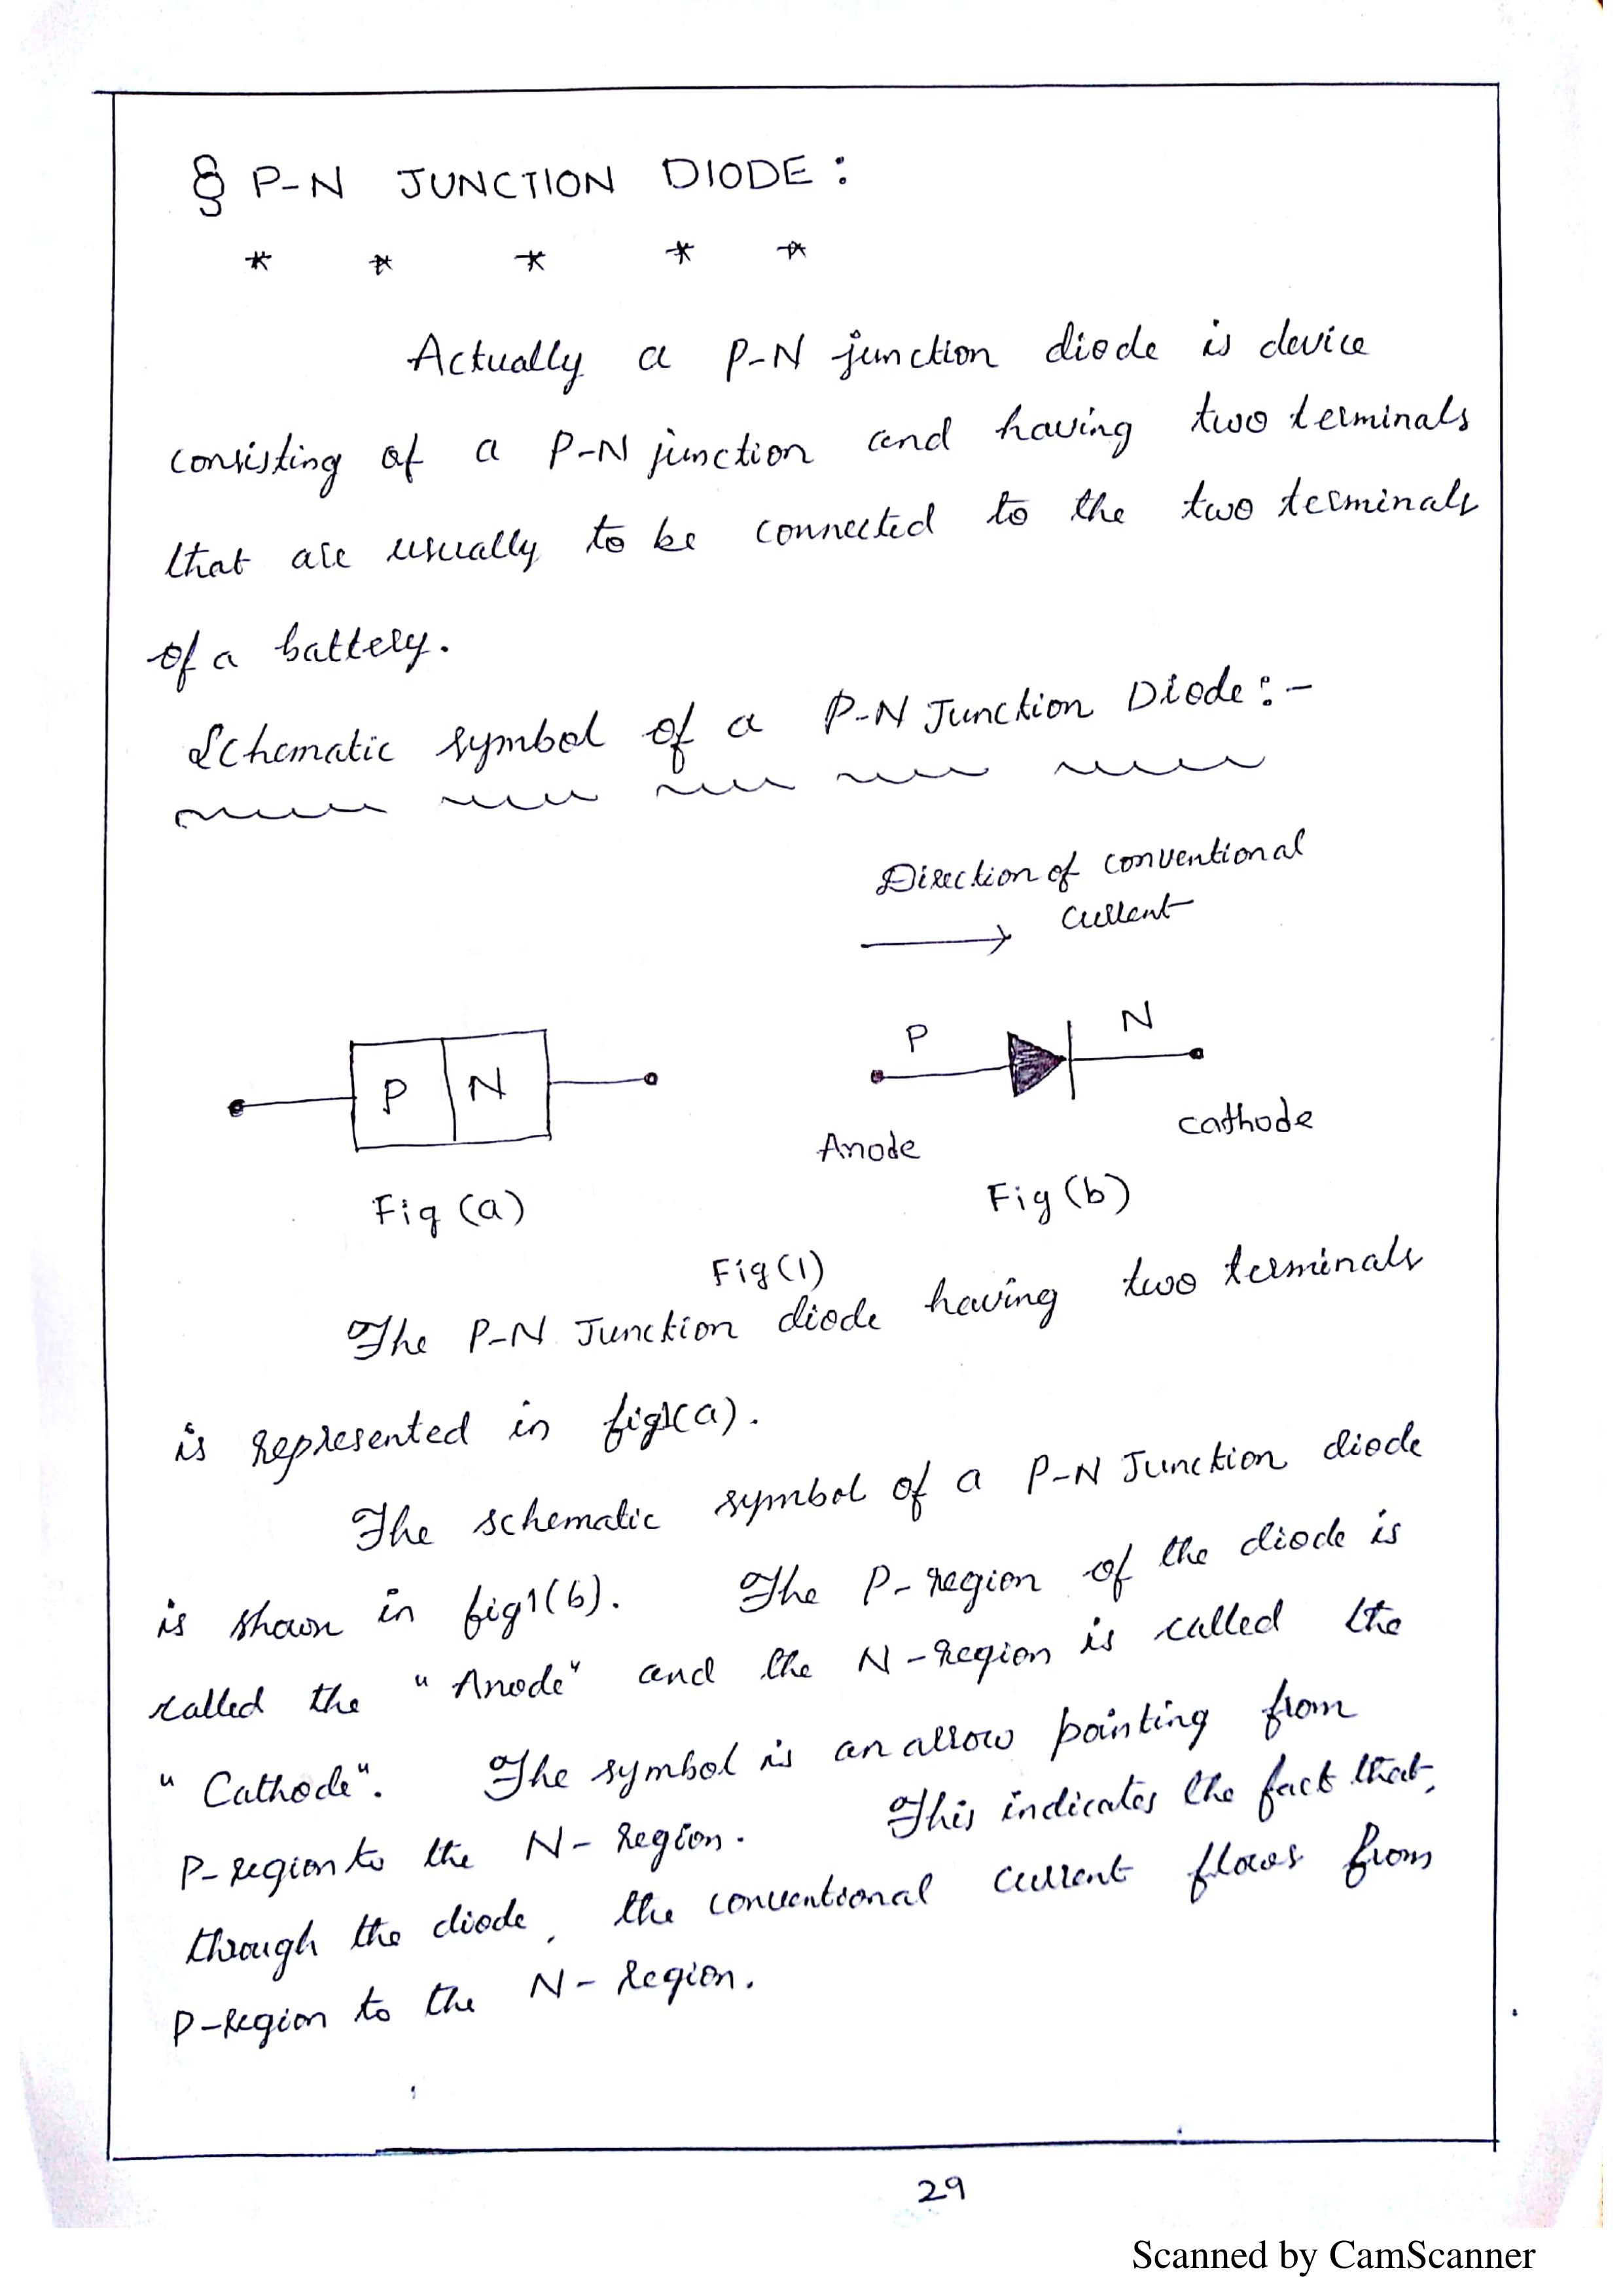 § P-N JUNCTION DIODE:
* * * * *
Actually a P-N junction diode is device
consisting of a P-N junction and having two terminals
that are usually to be connected to the two terminals
of a battery.
Schematic symbol of a P-N Junction Diode:-
Direction of conventional
current
P N
P N
Anode cathode
Fig (a) Fig (b)
Fig (1)
The P-N Junction diode having two terminals
is represented in fig1(a).
The schematic symbol of a P-N Junction diode
is shown in fig1(b). The P-region of the diode is
called the "Anode" and the N-region is called the
"Cathode". The symbol is an arrow pointing from
P-region to the N-region. This indicates the fact that,
through the diode, the conventional current flows from
P-region to the N-region.
29
Scanned by CamScanner